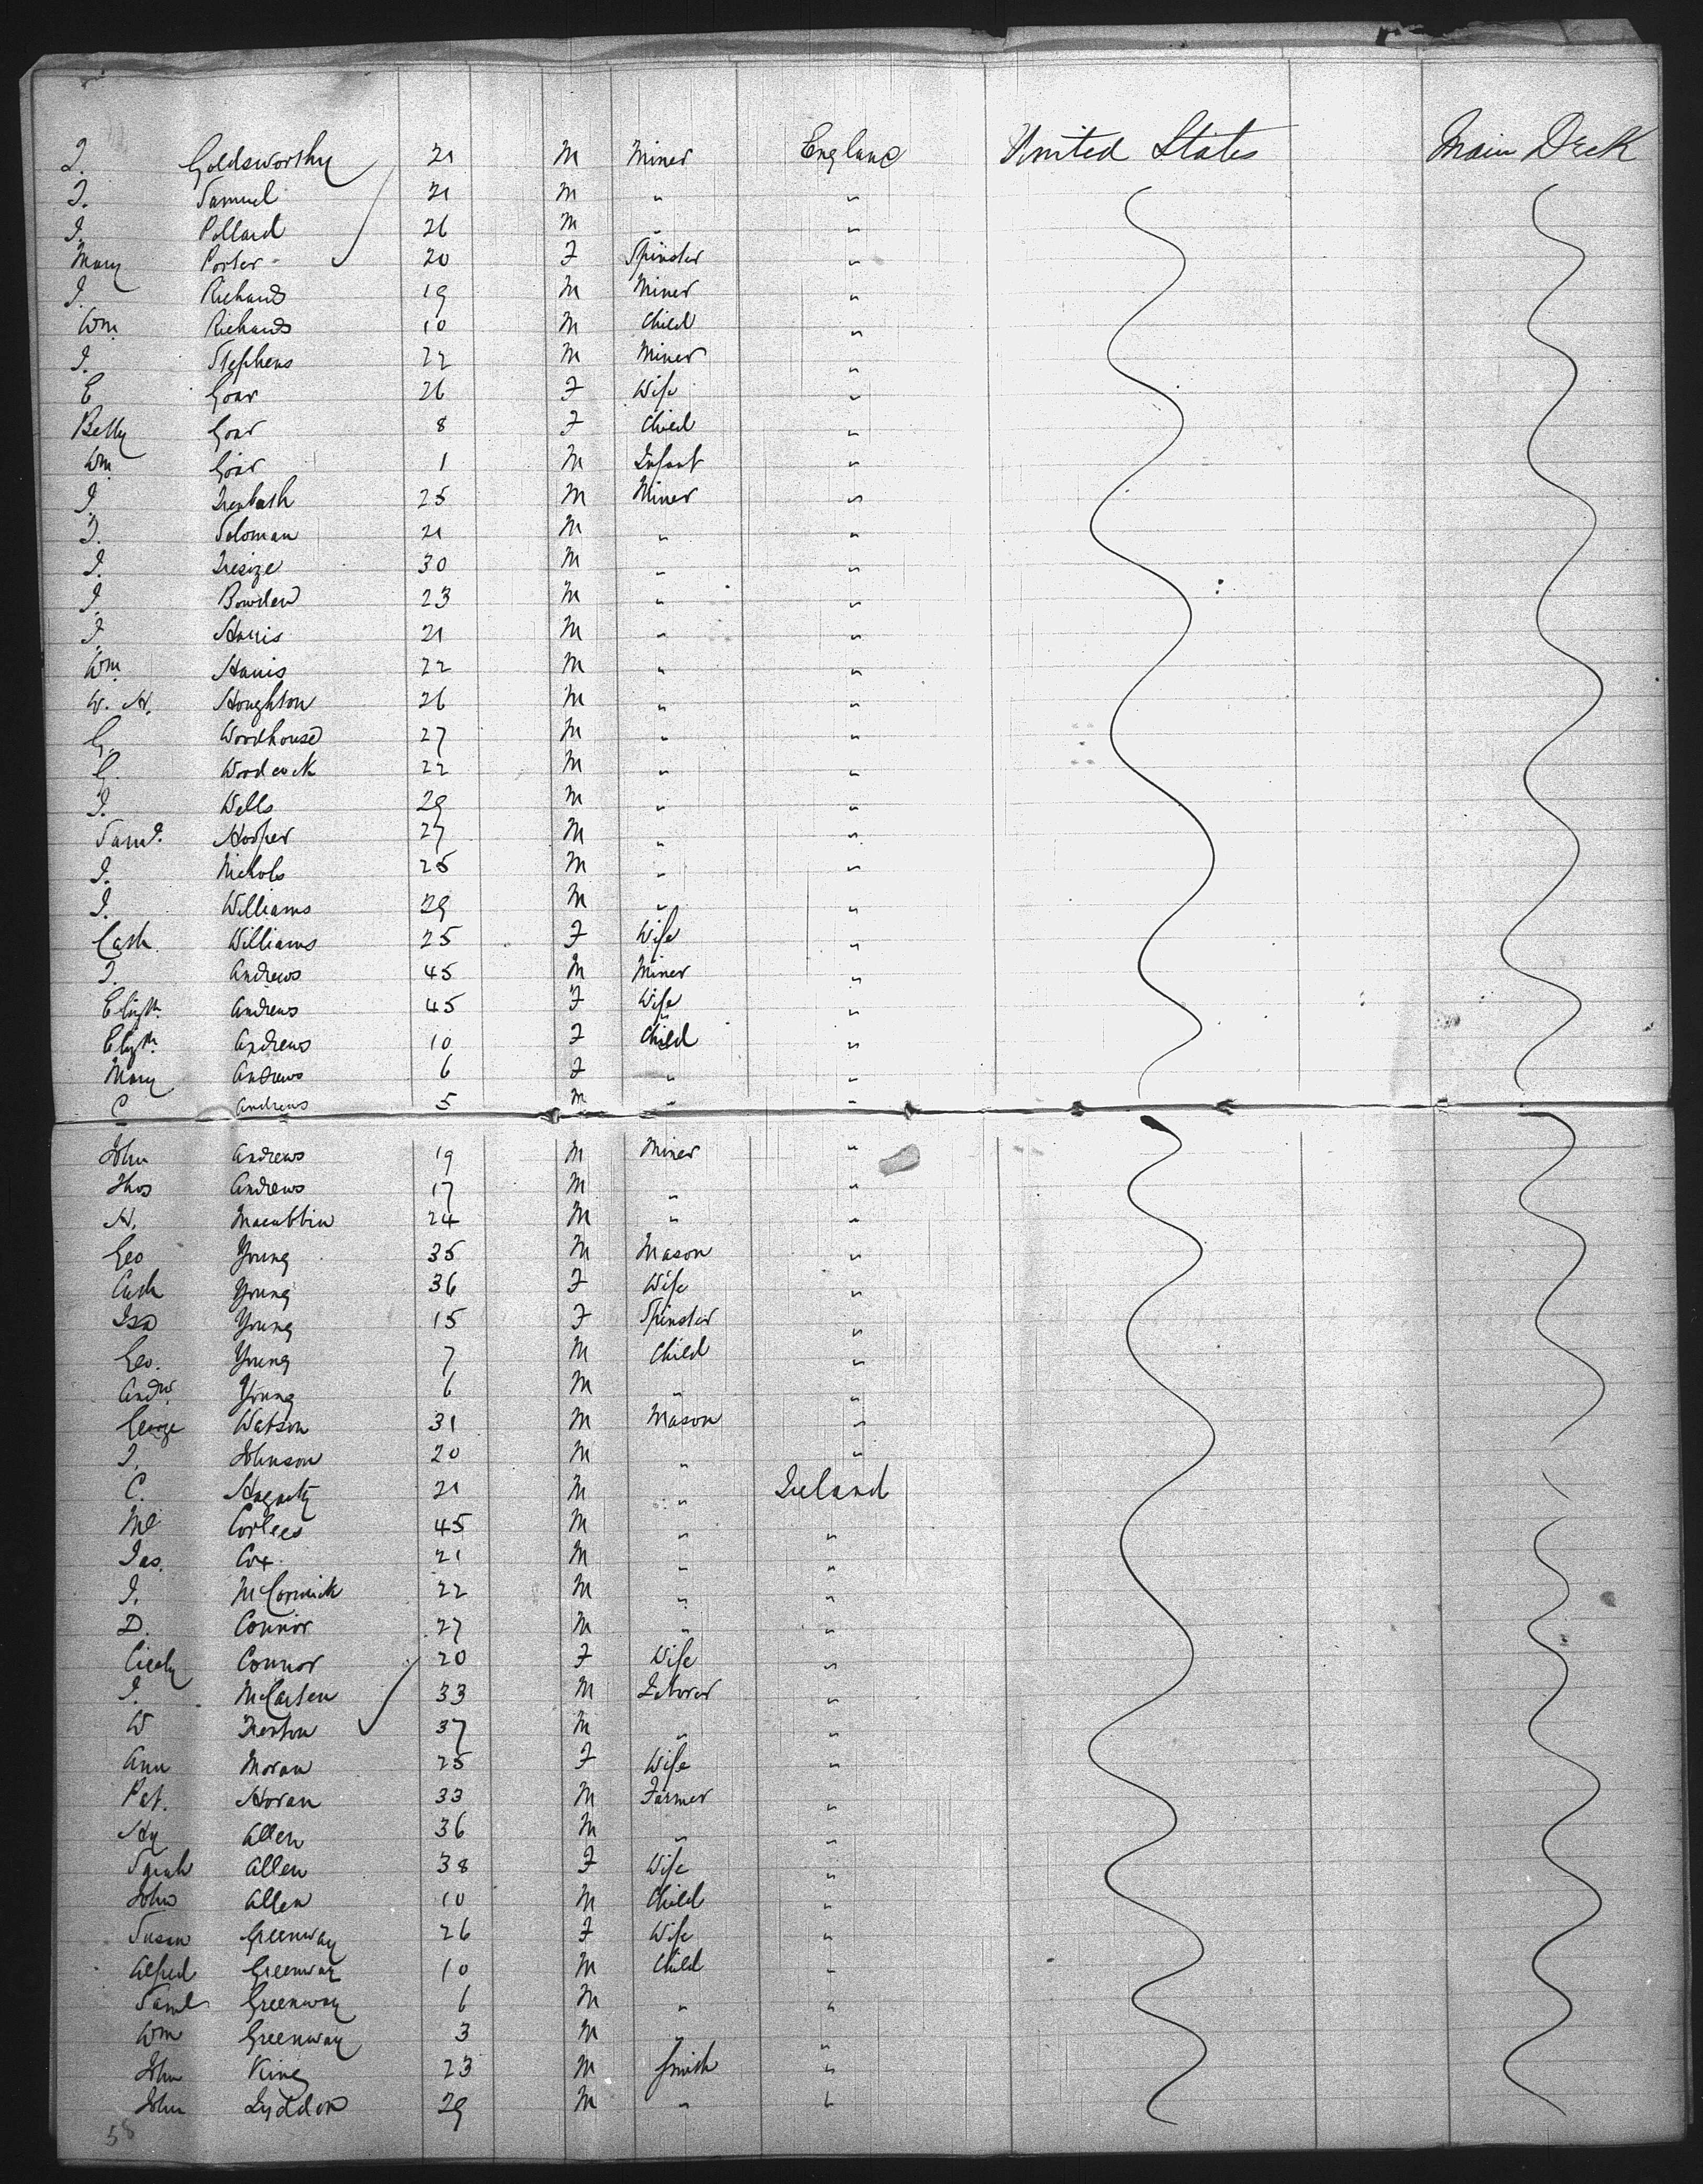 T. Goldsworthy 21 M Miner England United States Main Deck
T. Samuel 21 M " "
J. Pollard 26 M " "
Mary Porter 20 F Spinster "
J. Richards 19 M Miner "
Wm Richards 10 M Child "
J. Stephens 22 M Miner "
E Goar 26 F Wife "
Betty Goar 8 F Child "
Wm Goar 1 M Infant "
J. 25 M Miner "
T. Soloman 21 M " "
J. Tresize 30 M " "
J. Bowden 23 M " "
J. Harris 21 M " "
Wm. Harris 22 M " "
W. H. Houghton 26 M " "
G. Woodhouse 27 M " "
G. Woodcock 22 M " "
J. Wells 29 M " "
Saml. Hooper 27 M " "
J. Nichols 25 M " "
J. Williams 29 M " "
Cath. Williams 25 F Wife "
T. Andrews 45 M Miner "
Elizth. Andrews 45 F Wife "
Elizth. Andrews 10 F Child "
Mary Andrews 6 F " "
C Andrews 5 M " "
John Andrews 19 M Miner "
Thos Andrews 17 M " "
H. Macubbin 24 M " "
Geo Young 35 M Mason "
Cath Young 36 F Wife "
Isa Young 15 F Spinster "
Geo. Young 7 M Child "
Andw. Young 6 M " "
George Watson 31 M Mason "
T. Johnson 20 M " "
C. Hagerty 21 M " Ireland
Ml Corlees 45 M " "
Jas. Cox 21 M " "
J. McCormick 22 M " "
D. Connor 27 M " "
Cicely Connor 20 F Wife "
J. McCarten 33 M Laborer "
W 37 M " "
Ann Moran 25 F Wife "
Pat. Horan 33 M Farmer "
Hy Allen 36 M " "
Sarah Allen 38 F Wife "
John Allen 10 M Child "
Susan Greenway 26 F Wife "
Alfred Greenway 10 M Child "
Saml Greenway 6 M " "
Wm Greenway 3 M " "
John King 23 M Smith "
John Lyddon 29 M " "
58